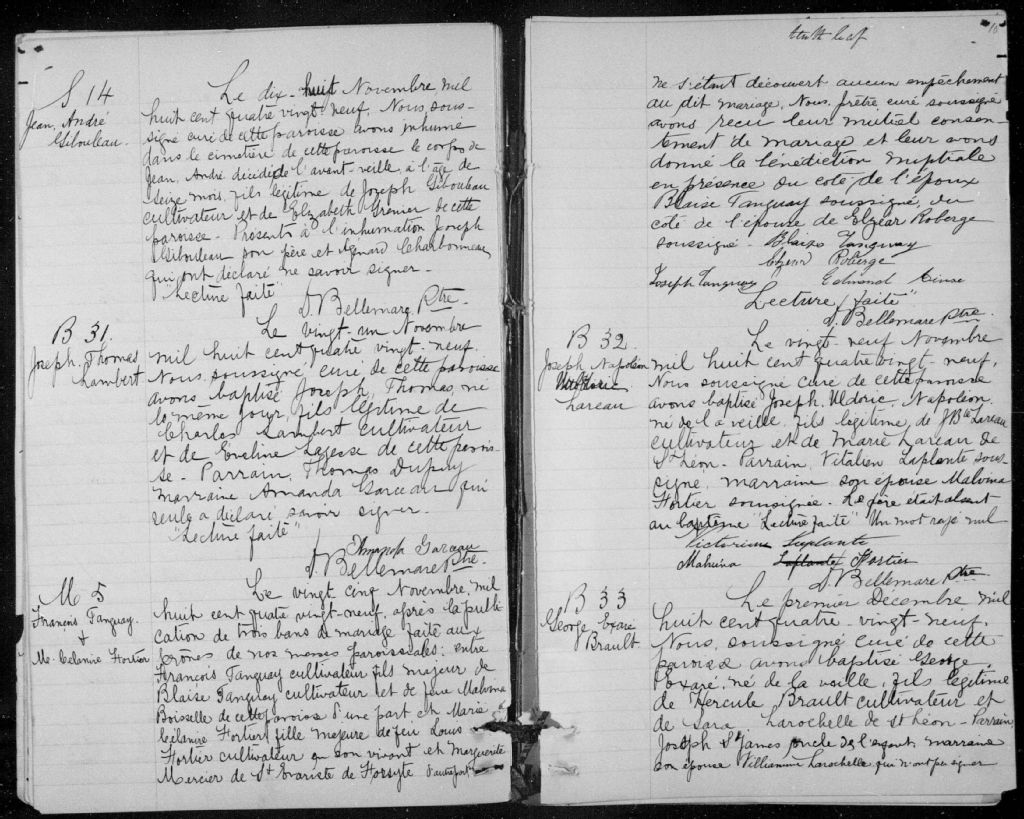 S 14
Jean, André
Gibouleau.
Le dix-huit Novembre mil
huit cent quatre vingt-neuf, Nous sous-
signé curé de cette paroisse avons inhumé
dans le cimetière de cette paroisse le corps de
Jean, André décédé l'avant-veille, à l'âge de
seize mois, fils légitime de Joseph Gibouleau
cultivateur et de Elizabeth Grenier de cette
paroisse. Présents à l'inhumation Joseph
Gibouleau son père et Charbonneau
qui ont déclaré ne savoir signer.
"Lecture faite"
D. Bellemare Ptre
B 31.
Joseph, Thomas
Lambert
Le vingt-un Novembre
mil huit cent quatre vingt-neuf,
Nous, soussigné, curé de cette paroisse
avons baptisé Joseph, Thomas, né
le même jour, fils légitime de
Charles Lambert cultivateur
et de Eveline Lagasse de cette parois-
se. Parrain, Thomas Dupuy
marraine Amanda Garceau qui
seule a déclaré savoir signer.
"Lecture faite"
Amanda Gareau
D. Bellemare Ptre.
M 5
François Tanguay
+
Me. Célanire Fortier
Le vingt cinq Novembre, mil
huit cent quatre vingt-neuf, après la publi-
cation de trois bans de mariage faite aux
prônes de nos messes paroissiales; entre
François Tanguay cultivateur fils majeur de
Blaise Tanguay cultivateur et de feue Malvina
Boisselle de cette paroisse d'une part et Marie
Célanire Fortier, fille majeure de feu Louis
Fortier cultivateur en son vivant et Marguerite
Mercier de St Evariste de Forsyte d'autre part
tenth leaf
10
ne s'étant découvert aucun empêchement
au dit mariage, Nous, prêtre curé soussigné
avons reçu leur mutuel consen-
tement de mariage et leur avons
donné la bénédiction nuptiale
en présence du côté de l'époux
Blaise Tanguay soussigné, du
côté de l'épouse de Elzéar Roberge
soussigné. Blaise Tanguay
Elzéar Roberge
Joseph Tanguay Edmond
Lecture faite"
D. Bellemare Ptre.
B 32.
Joseph Napoléon
Uldoric
Lareau
Le vingt-neuf Novembre
mil huit cent quatre vingt neuf,
Nous soussigné curé de cette paroisse
avons baptisé Joseph, Uldoric, Napoléon,
né de la veille, fils légitime, de J Bte Lareau
cultivateur et de Marie Lareau de
St Léon. Parrain, Vitalien Laplante sous-
signé, marraine son épouse Malvina
Fortier soussignée. Le père était absent
au baptême "Lecture faite" Un mot rayé nul
Laplante
Malvina Laplante Fortier
D. Bellemare Ptre
B 33
George Exaré
Brault
Le premier Décembre, mil
huit cent quatre-vingt-neuf,
Nous, soussigné curé de cette
paroisse avons baptisé George,
Exaré, né de la veille, fils légitime
de Hercule Brault cultivateur et
de Sara Larochelle de St Léon. Parrain
Joseph St James oncle de l'enfant, marraine
son épouse Larochelle qui n'ont pu signer